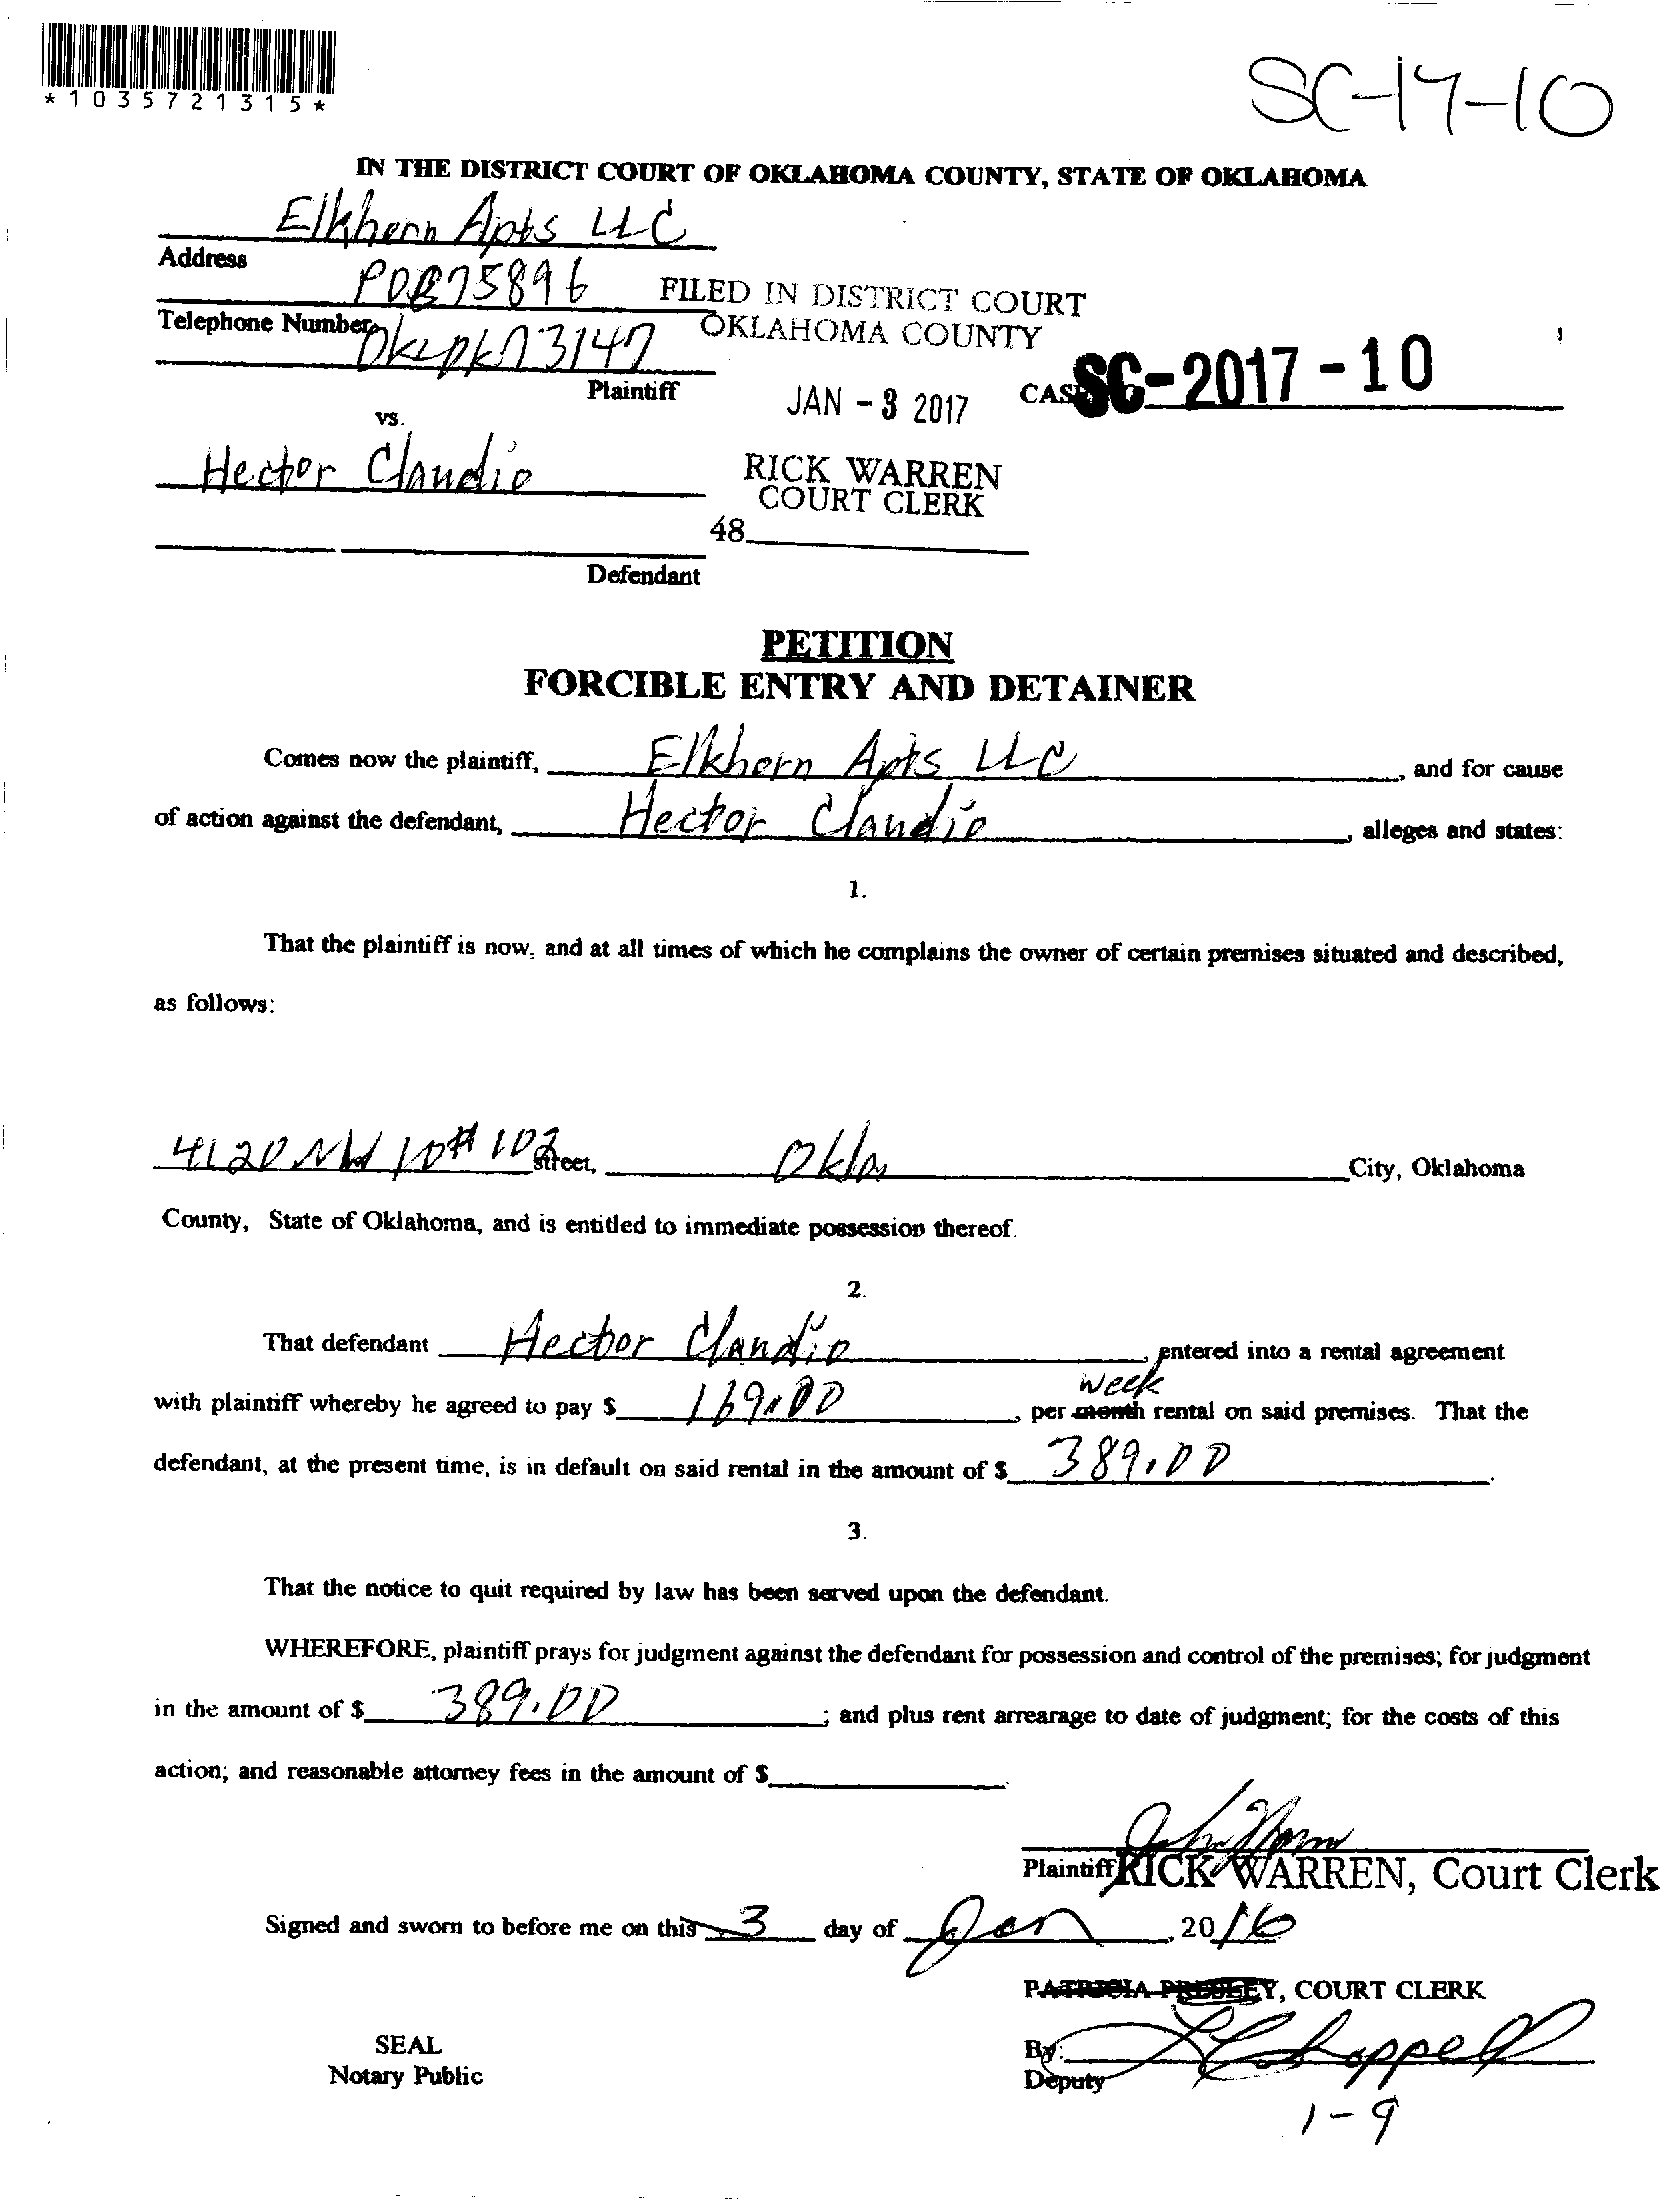 *1035721315*
SC-17-10
IN THE DISTRICT COURT OF OKLAHOMA COUNTY, STATE OF OKLAHOMA
Elkhorn Apts LLC
Address
POB 75896
FILED IN DISTRICT COURT
OKLAHOMA COUNTY
Telephone Number
73147
Plaintiff
JAN - 3 2017
SC-2017-10
vs.
Hector Claudio
RICK WARREN
COURT CLERK
48
Defendant
PETITION
FORCIBLE ENTRY AND DETAINER
Comes now the plaintiff, Elkhorn Apts LLC, and for cause
of action against the defendant, Hector Claudio, alleges and states:
1.
That the plaintiff is now, and at all times of which he complains the owner of certain premises situated and described,
as follows:
4120 NW 10 # 102 Street, Okla City, Oklahoma
County, State of Oklahoma, and is entitled to immediate possession thereof.
2.
That defendant Hector Claudio, entered into a rental agreement
week
with plaintiff whereby he agreed to pay $ 169.00, per month rental on said premises. That the
defendant, at the present time, is in default on said rental in the amount of $ 389.00.
3.
That the notice to quit required by law has been served upon the defendant.
WHEREFORE, plaintiff prays for judgment against the defendant for possession and control of the premises; for judgment
in the amount of $ 389.00; and plus rent arrearage to date of judgment; for the costs of this
action; and reasonable attorney fees in the amount of $
Plaintiff RICK WARREN, Court Clerk
Signed and sworn to before me on this 3 day of Jan, 2016
PATRICIA PRESLEY, COURT CLERK
SEAL
By:
Notary Public
Deputy
1-9